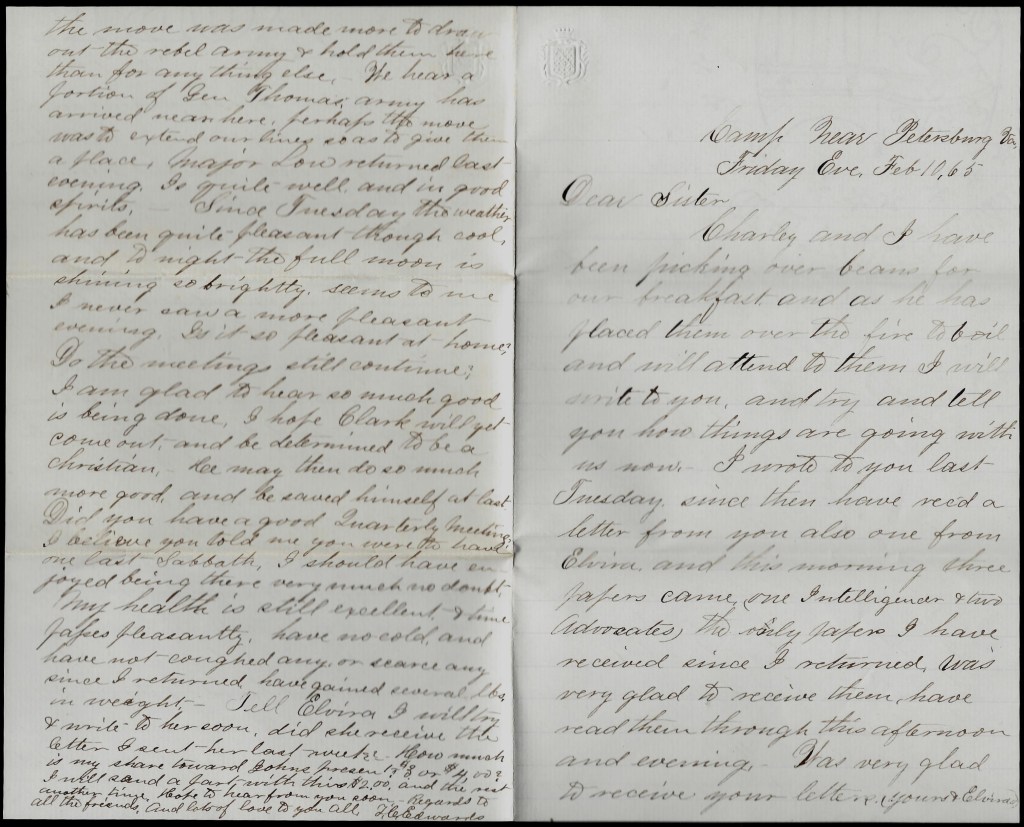 Camp Near Petersburg Va.
Friday Eve, Feb 10, 65
Dear Sister
Charley and I have
been picking over beans for
our breakfast and as he has
placed them over the fire to boil
and will attend to them I will
write to you, and try and tell
you how things are going with
us now. - I wrote to you last
Tuesday, since then have rec'd a
letter from you also one from
Elvira, and this morning three
papers came, (one Intelligencer & two
Advocates) the only papers I have
received since I returned, Was
very glad to receive them, have
read them through this afternoon
and evening. - Was very glad
to receive your letters. (yours & Elviras)
the move was made more to draw
out the rebel army & hold them here
than for anything else, - We hear a
portion of Gen Thomas' army has
arrived near here, perhaps the move
was to extend our lines so as to give them
a place, Major Low returned last
evening, Is quite well, and in good
spirits, - Since Tuesday the weather
has been quite pleasant though cool,
and to night the full moon is
shining so brightly, seems to me
I never saw a more pleasant
evening. Is it so pleasant at home?
Do the meetings still continue?
I am glad to hear so much good
is being done, I hope Clark will yet
come out, and be determined to be a
christian, - He may then do so much
more good, and be saved himself at last
Did you have a good Quarterly Meeting?
I believe you told me you were to have
one last Sabbath, I should have en-
joyed being there very much no doubt.
My health is still excellent & time
passes pleasantly, have no cold, and
have not coughed any, or scarce any
since I returned, have gained several lbs,
in weight, - Tell Elvira I will try
& write to her soon, did she receive the
letter I sent her last week - How much
is my share toward Johns presen or $4,00?
I will send a part with this $2.00, and the rest
another time, Hope to hear from you soon, Regards to
all the friends, and lots of love to you all, Edwards